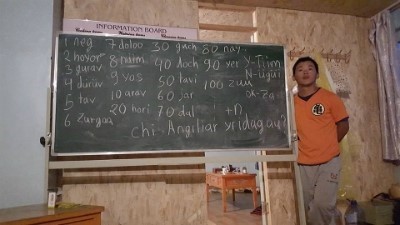 INFORMATION BOARD
1 neg 7 doloo 30 guch 80 nay
2 hoyor 8 naim 40 doch 90 yer y-Tiim
3 gurav 9 yos 50 tavi 100 zuu N-ugui
4 duruv 10 arav 60 jar
5 tav 20 hori 70 dal +n
6 zurgaa chi Angiliar yridagau?